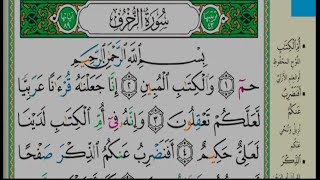 سُورَةُ الزُّخْرُفِ
بِسْمِ اللَّهِ الرَّحْمَٰنِ الرَّحِيمِ
حمٓ ١ وَالْكِتَٰبِ الْمُبِينِ ٢ إِنَّا جَعَلْنَٰهُ قُرْءَٰنًا عَرَبِيًّا
لَّعَلَّكُمْ تَعْقِلُونَ ٣ وَإِنَّهُۥ فِىٓ أُمِّ الْكِتَٰبِ لَدَيْنَا
لَعَلِىٌّ حَكِيمٌ ٤ أَفَنَضْرِبُ عَنكُمُ الذِّكْرَ صَفْحًا
أُمِّ الْكِتَٰبِ
أَفَنَضْرِبُ
عَنكُمُ
الذِّكْرَ